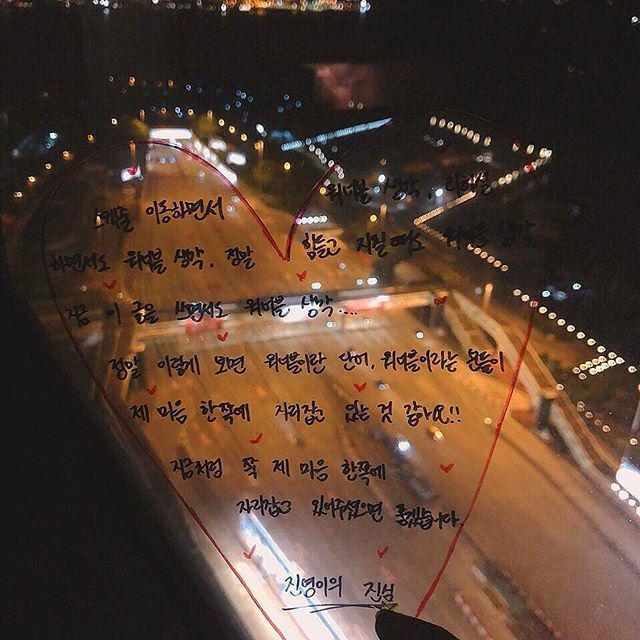 스케줄 이동하면서 워너블 생각, 리허설
하면서도 워너블 생각, 정말 힘들고 지칠 때도 워너블 생각
지금 이 글을 쓰면서도 워너블 생각....
정말 이렇게 보면 워너블이란 단어, 워너블이라는 분들이
제 마음 한쪽에 자리잡고 있는 것 같네요!!
지금처럼 쭉 제 마음 한쪽에
자리잡고 있어주셨으면 좋겠습니다.
진영이의 진심